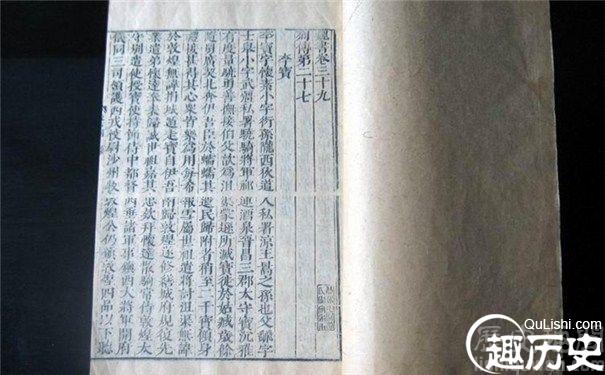 魏書卷三十九
列傳第二十七
李寶
李寶字懷素小字衍孫隴西狄道人私署涼王暠之孫也父翻字
士舉小字武彊私署驍騎將軍祁連酒泉晉昌三郡太守寶沉雅
有度量驍勇善撫接伯父歆為沮渠蒙遜所滅寶徙於姑臧歲餘
隨舅唐契北奔伊吾臣於蠕蠕其遺民歸附者稍至二千寶傾身
禮接甚得其心衆皆樂為用每希報雪屬世祖遣將討沮渠無諱
於敦煌無諱捐城遁走寶自伊吾南歸敦煌遂修繕城府規復先
業遣弟懷達奉表歸誠世祖嘉其忠款拜懷達散騎常侍敦煌太
守別遣使授寶使持節侍中都督西垂諸軍事鎮西大將軍開府
儀同三司領護西戎校尉沙州牧敦煌公仍鎮敦煌四品以下聽
QuLishi.com
趣历史